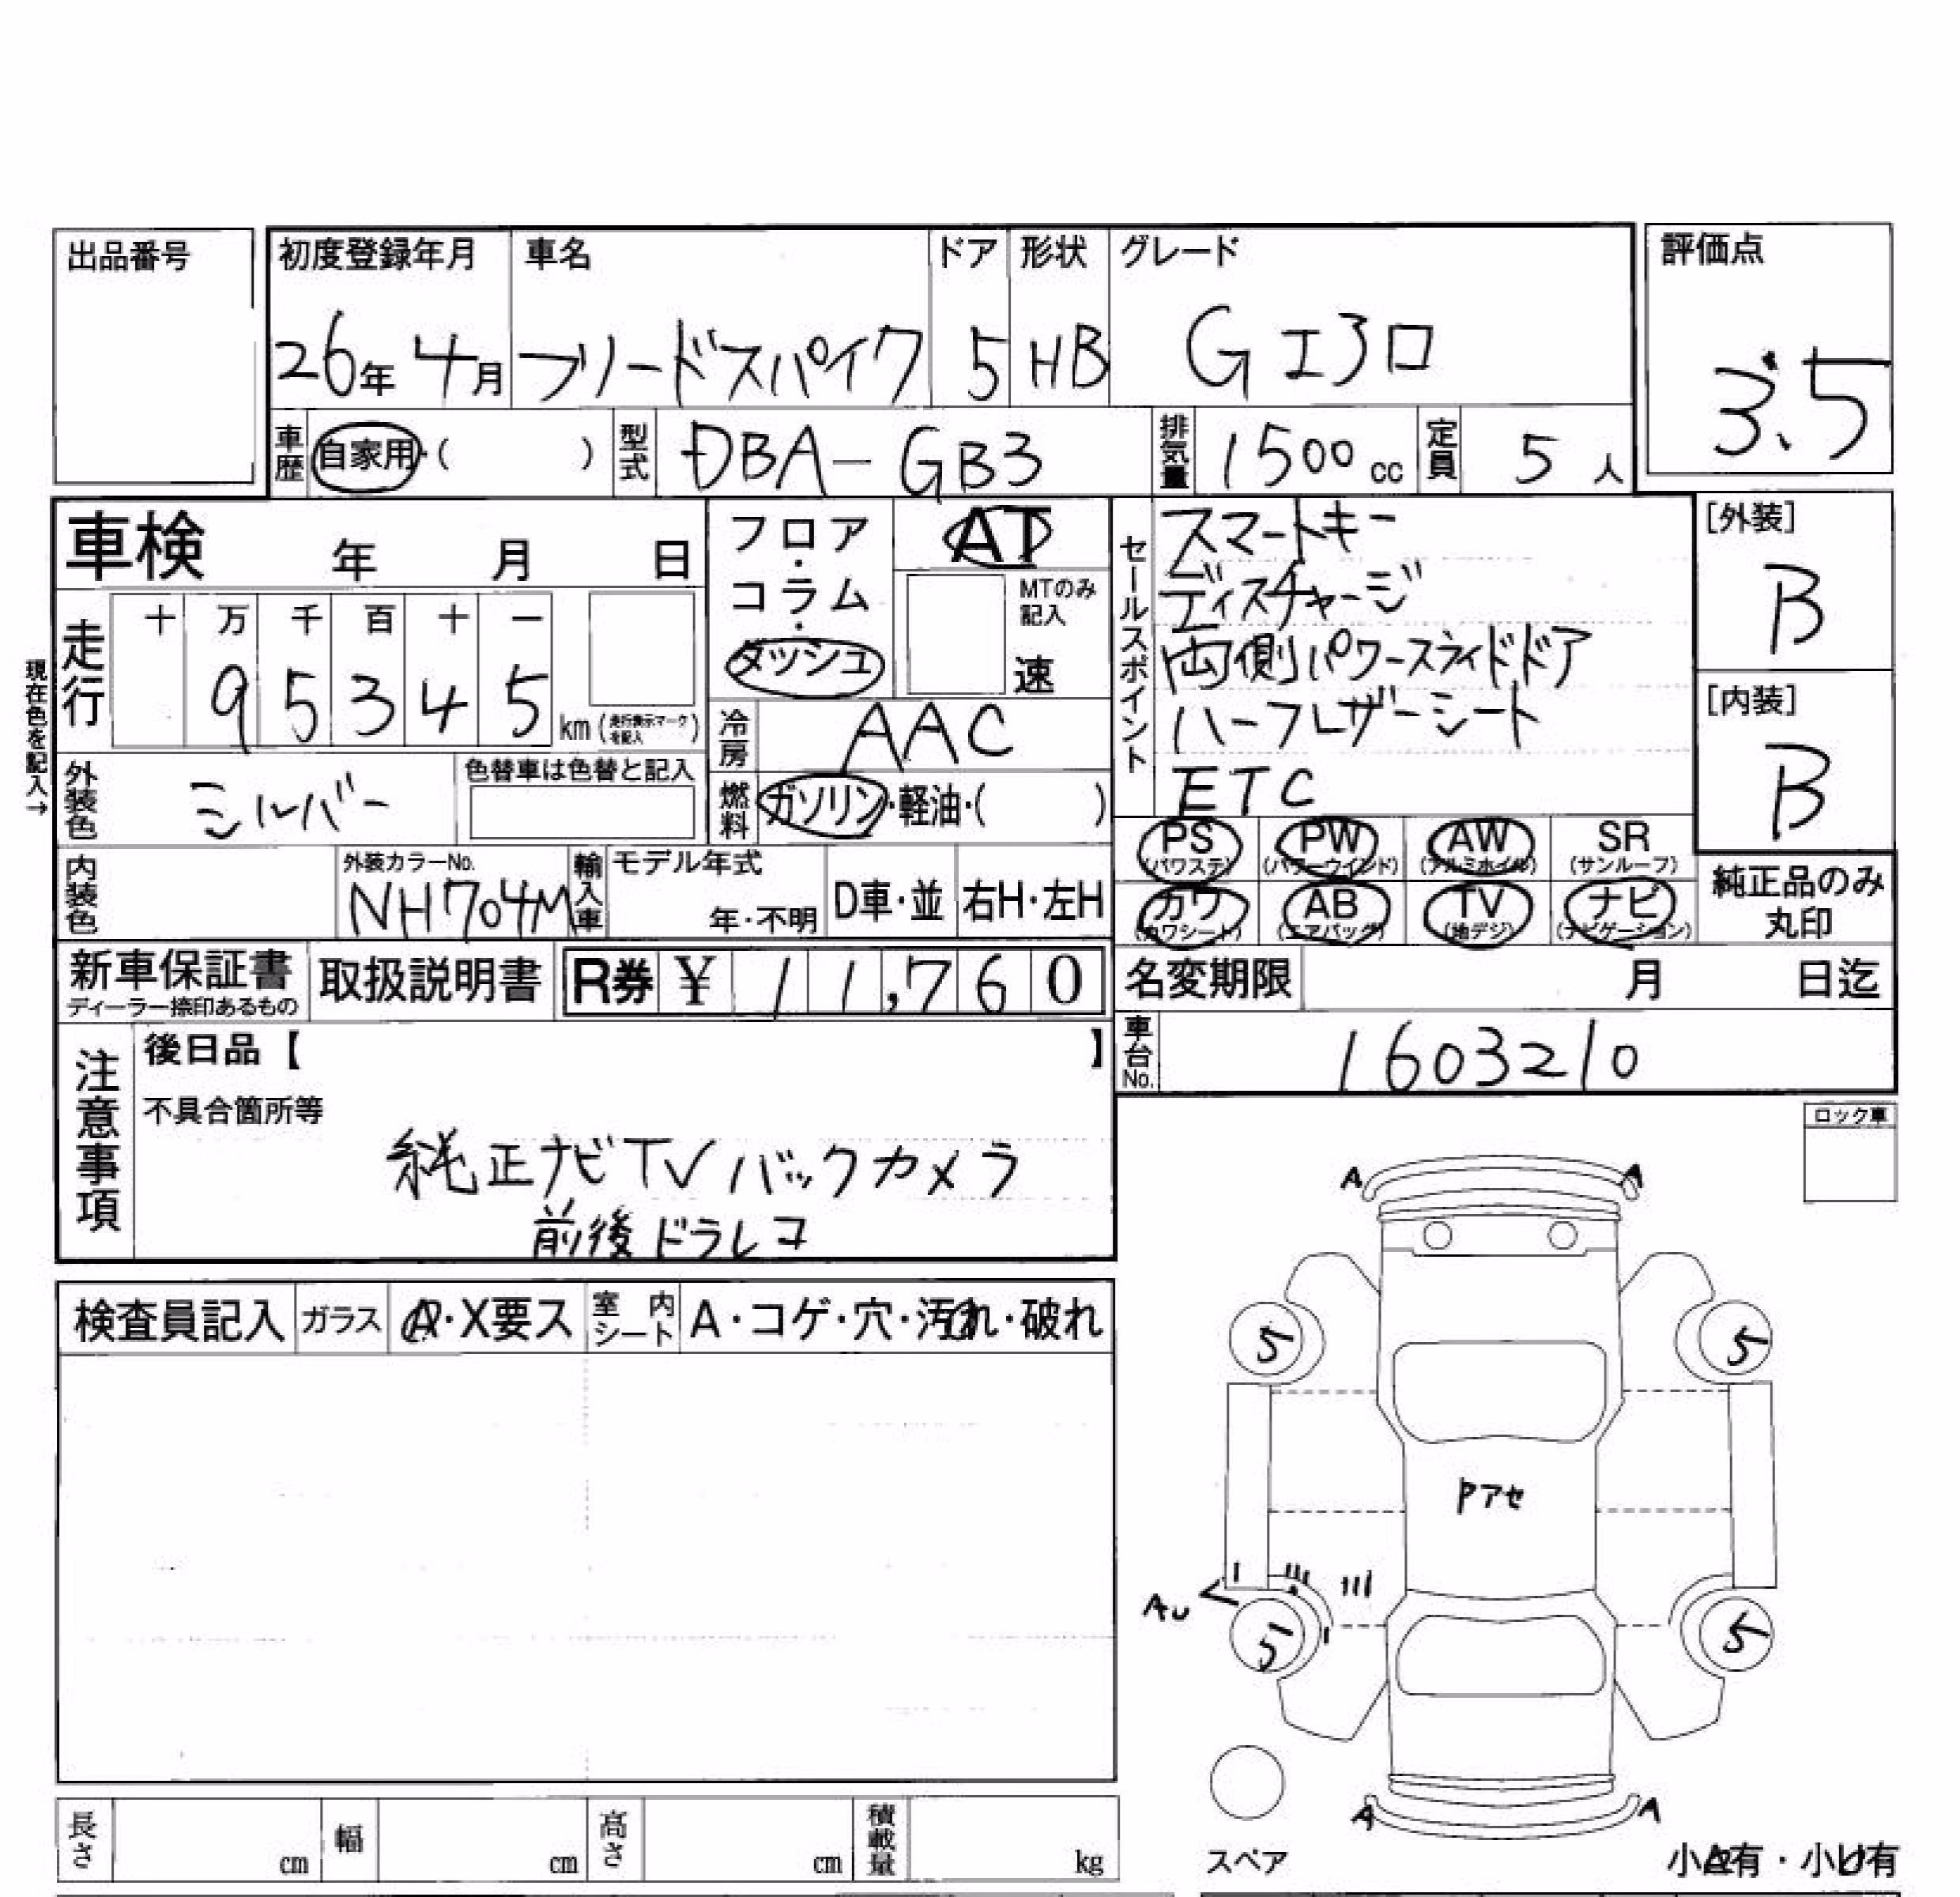 出品番号
初度登録年月 車名 ドア 形状 グレード 評価点
26年 4月 フリードスパイク 5 HB Gエアロ 3.5
車歴 自家用・( ) 型式 DBA-GB3 排気量 1500cc 定員 5人
車検 年 月 日
フロア・コラム・ダッシュ
AT
MTのみ記入
速
セールスポイント
スマートキー
ディスチャージ
両側パワースライドドア
ハーフレザーシート
ETC
[外装]
B
[内装]
B
現在色を記入→
走行 十 万 千 百 十 一
95345 km (走行表示マークを記入)
冷房 AAC
燃料 ガソリン・軽油・( )
外装色 シルバー 色替車は色替と記入
内装色 外装カラーNo. NH704M 輸入車 モデル年式 年・不明 D車・並 右H・左H
PS (パワステ) PW (パワーウインド) AW (アルミホイル) SR (サンルーフ)
カワ (カワシート) AB (エアバッグ) TV (地デジ) ナビ (ナビゲーション)
純正品のみ
丸印
新車保証書 ディーラー捺印あるもの 取扱説明書 R券 ¥ 11,760
名変期限 月 日迄
車台No. 1603210
注意事項
後日品【 】
不具合箇所等
純正ナビTVバックカメラ
前後ドラレコ
ロック車
検査員記入 ガラス A・X要ス 室内シート A・コゲ・穴・汚れ・破れ
A A
5 5
Pアセ
AU
5 5
A A
スペア
小A有・小U有
長さ cm 幅 cm 高さ cm 積載量 kg